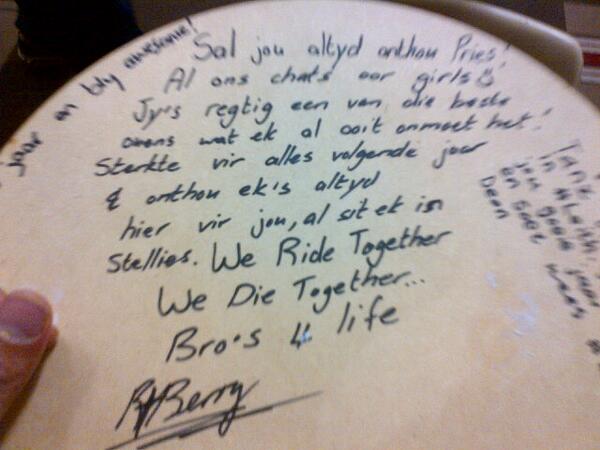 jaar en bly awesome!
Sal jou altyd onthou Pries!
Al ons chats oor girls
Jy's regtig een van die beste
ooens wat ek al ooit onmoet het!
Sterkte vir alles volgende jaar
& onthou ek's altyd
hier vir jou, al sit ek in
Stellies. We Ride Together
We Die Together...
Bro's 4 life
Berry